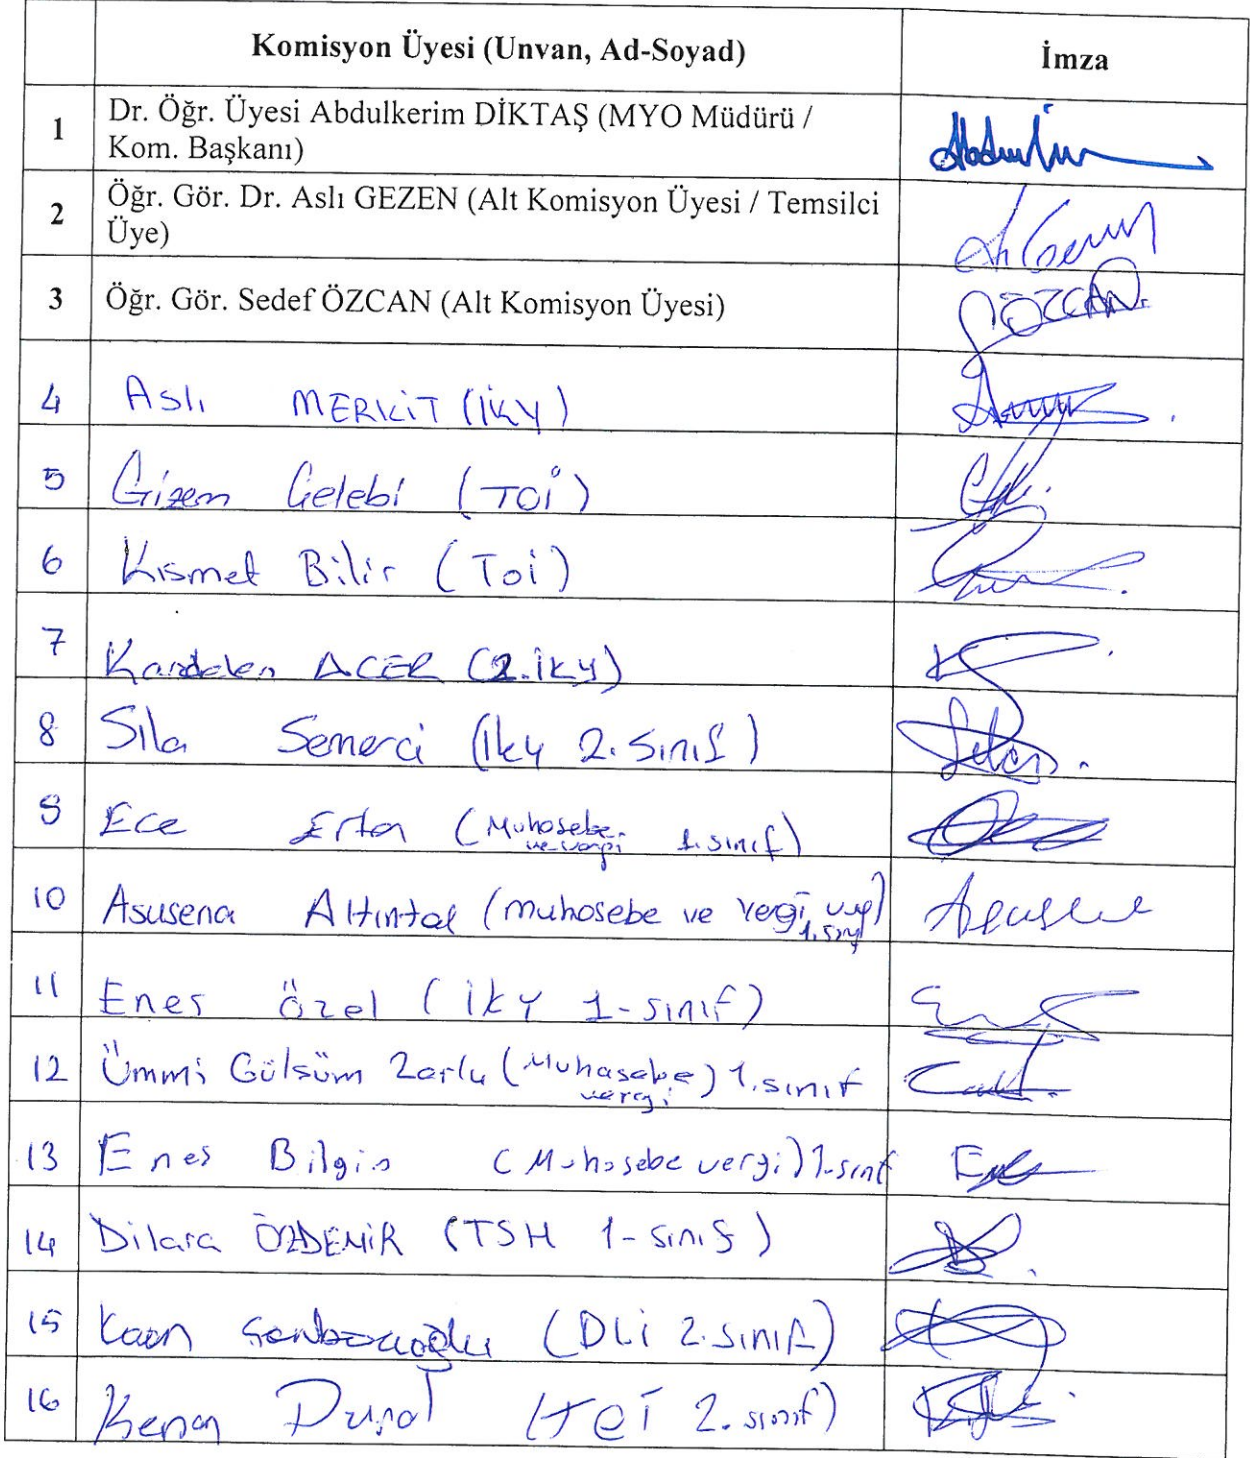 Komisyon Üyesi (Unvan, Ad-Soyad) İmza
1 Dr. Öğr. Üyesi Abdulkerim DİKTAŞ (MYO Müdürü /
Kom. Başkanı)
2 Öğr. Gör. Dr. Aslı GEZEN (Alt Komisyon Üyesi / Temsilci
Üye)
3 Öğr. Gör. Sedef ÖZCAN (Alt Komisyon Üyesi) ÖZCAN
4 Aslı MERKİT (İKY)
5 Gizem Çelebi (TOİ)
6 Kısmet Bilir (Toi)
7 Kardelen ACER (2.İKY)
8 Sıla Semerci (İky 2. Sınıf)
9 Ece Ertan (Muhasebe 1.sınıf)
ve vergi
10 Asusena Altıntaş (muhasebe ve vergi uyg)
1.sınıf
11 Enes Özel (İKY 1-sınıf)
12 Ümmi Gülsüm Zorlu (Muhasebe) 1.sınıf
vergi
13 Enes Bilgin (Muhasebe vergi) 1-sınıf
14 Dilara ÖZDEMİR (TSH 1-sınıf)
15 Kaan (DLİ 2.SINIF)
16 Kenan (2. sınıf)